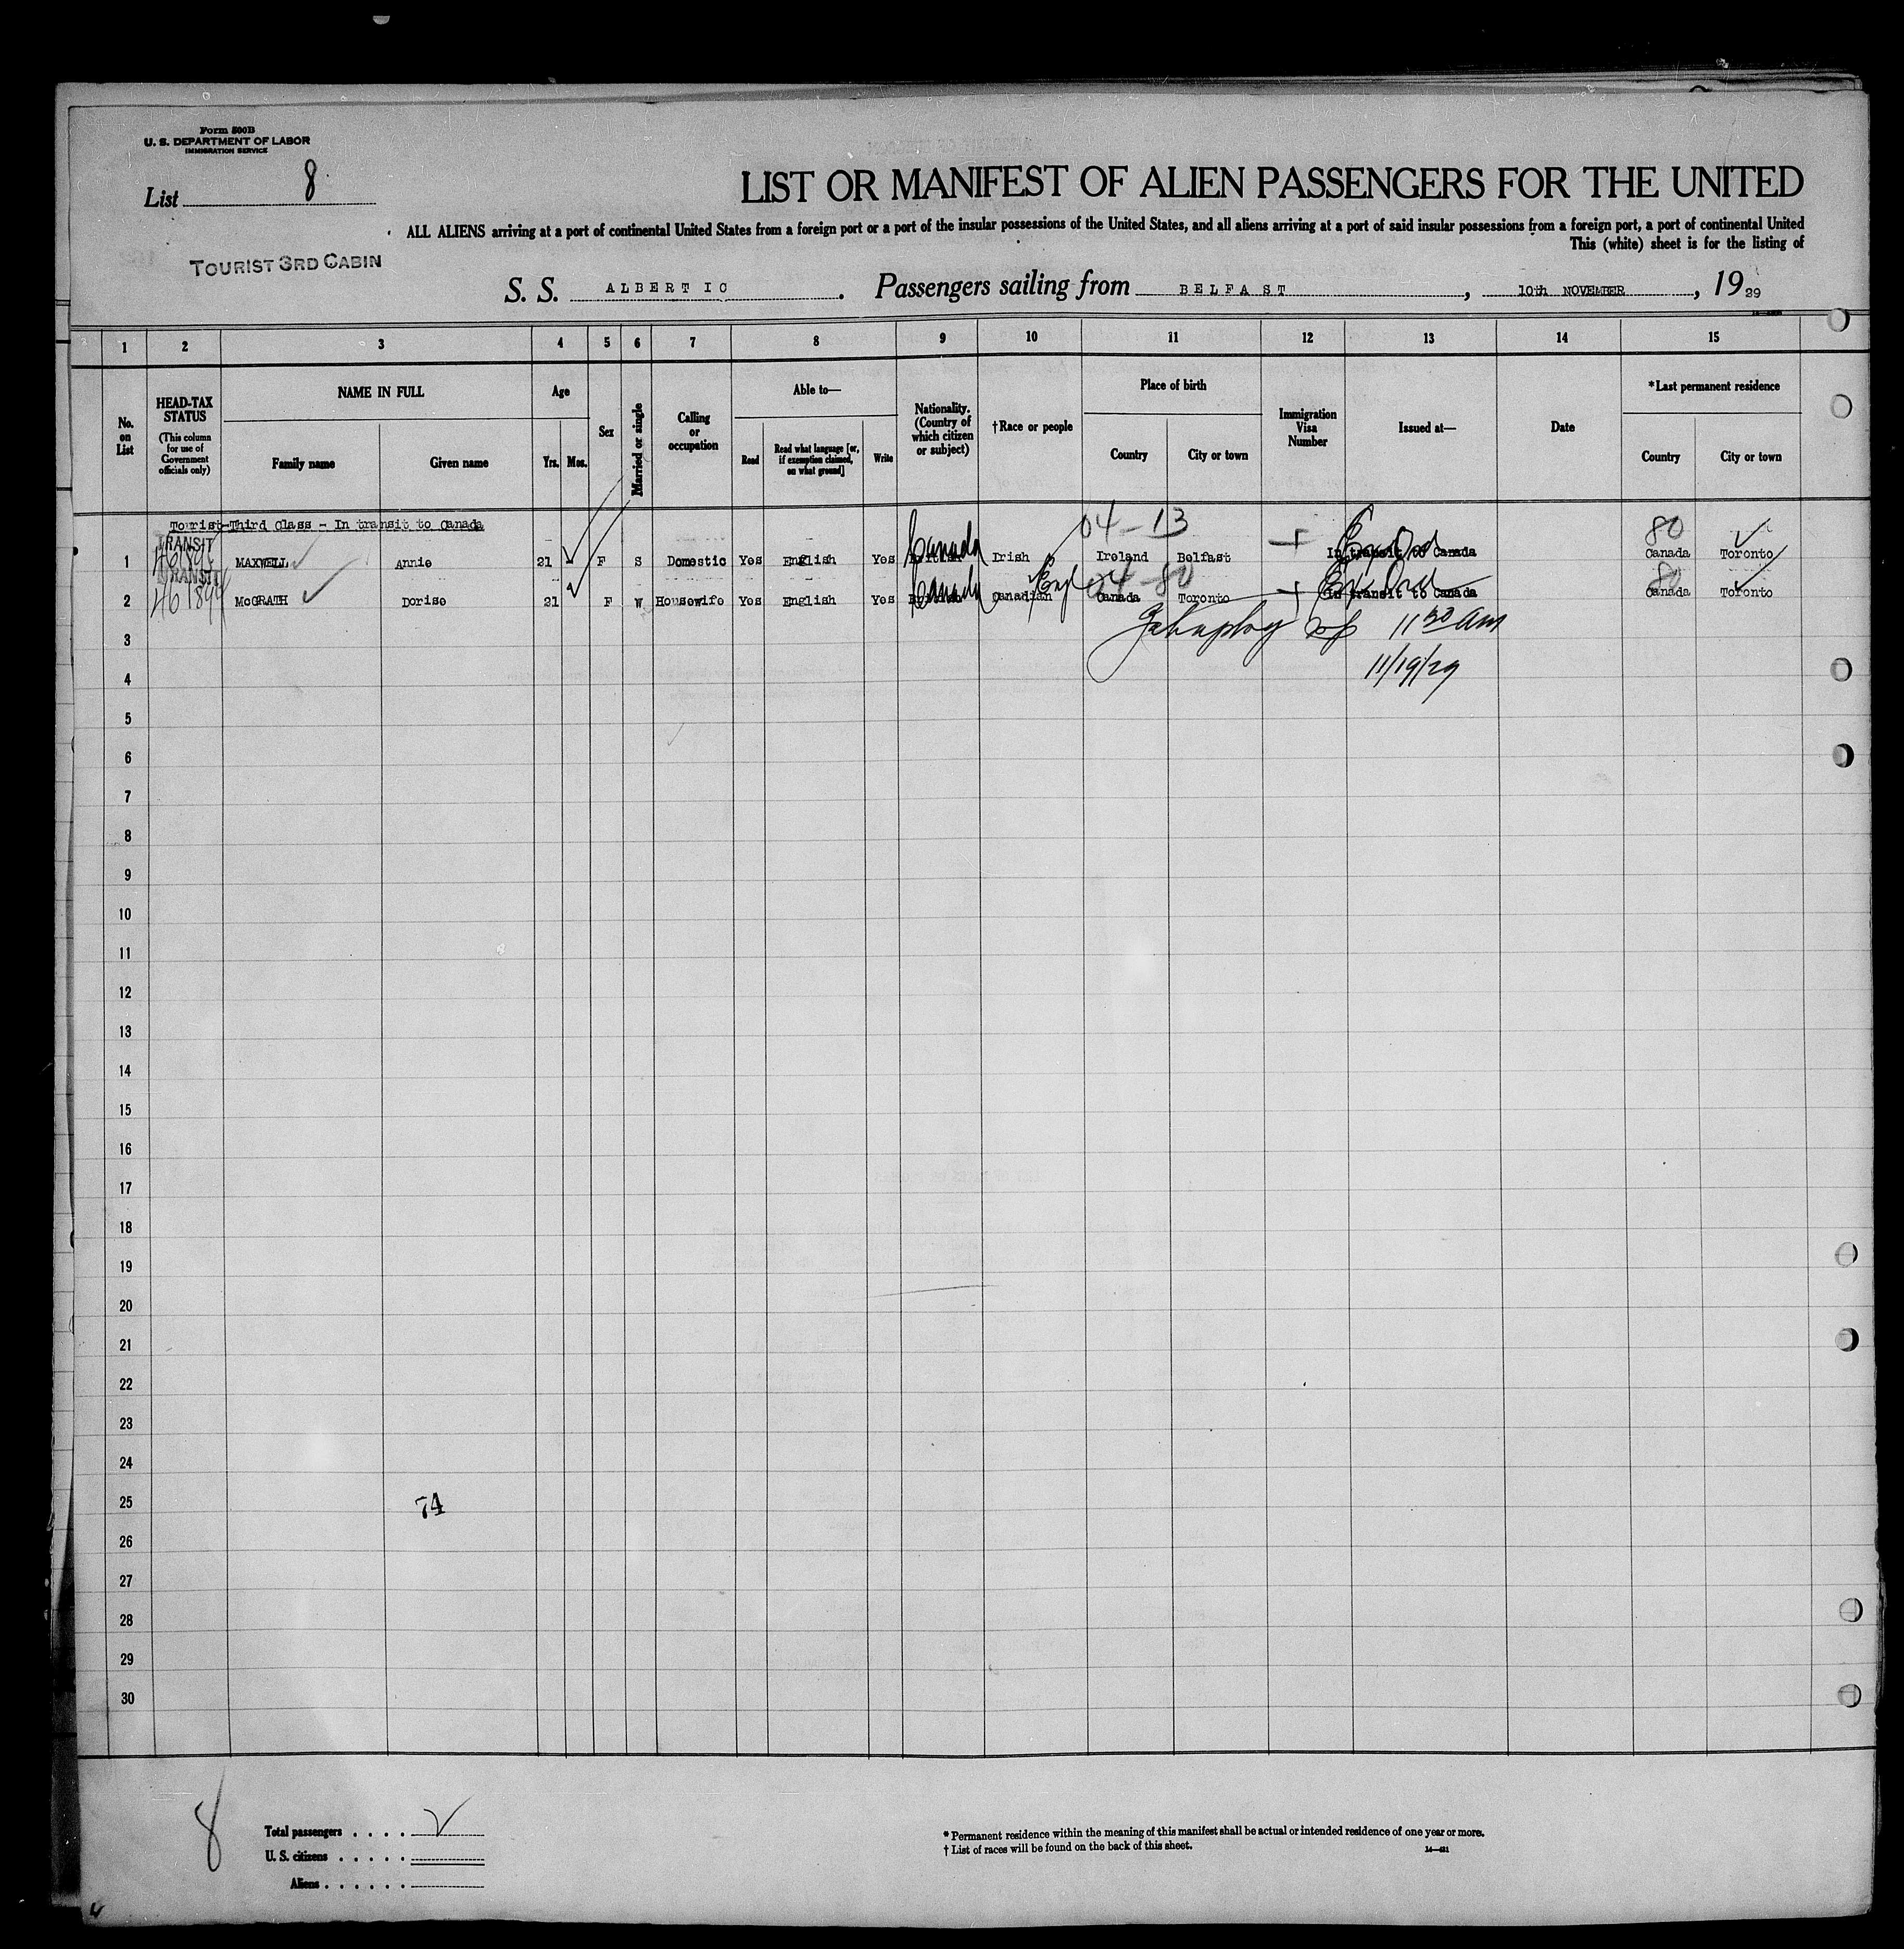 Form 500B
U. S. DEPARTMENT OF LABOR
IMMIGRATION SERVICE
List 8
LIST OR MANIFEST OF ALIEN PASSENGERS FOR THE UNITED
ALL ALIENS arriving at a port of continental United States from a foreign port or a port of the insular possessions of the United States, and all aliens arriving at a port of said insular possessions from a foreign port, a port of continental United
This (white) sheet is for the listing of
TOURIST 3RD CABIN
S. S. ALBERTIC. Passengers sailing from BELFAST, 10th NOVEMBER, 19 29
1 2 3 4 5 6 7 8 9 10 11 12 13 14 15
No. on List
HEAD-TAX STATUS (This column for use of Government officials only)
NAME IN FULL
Family name Given name
Age
Yrs. Mos.
Sex
Married or single
Calling or occupation
Able to—
Read Read what language [or, if exemption claimed, on what ground] Write
Nationality. (Country of which citizen or subject)
†Race or people
Place of birth
Country City or town
Immigration Visa Number
Issued at—
Date
*Last permanent residence
Country City or town
Tourist-Third Class - In transit to Canada
04-13 80
TRANSIT
1 MAXWELL Annie 21 F S Domestic Yes English Yes Canada Irish Ireland Belfast In transit to Canada Canada Toronto
TRANSIT Eng 04-80 80
2 McGRATH Dorise 21 F W Housewife Yes English Yes Canada Canadian Canada Toronto In transit to Canada Canada Toronto
11 30 am
11/19/29
3
4
5
6
7
8
9
10
11
12
13
14
15
16
17
18
19
20
21
22
23
24
25 74
26
27
28
29
30
8
Total passengers . . . .
U. S. citizens . . . . .
Aliens . . . . . .
* Permanent residence within the meaning of this manifest shall be actual or intended residence of one year or more.
† List of races will be found on the back of this sheet.